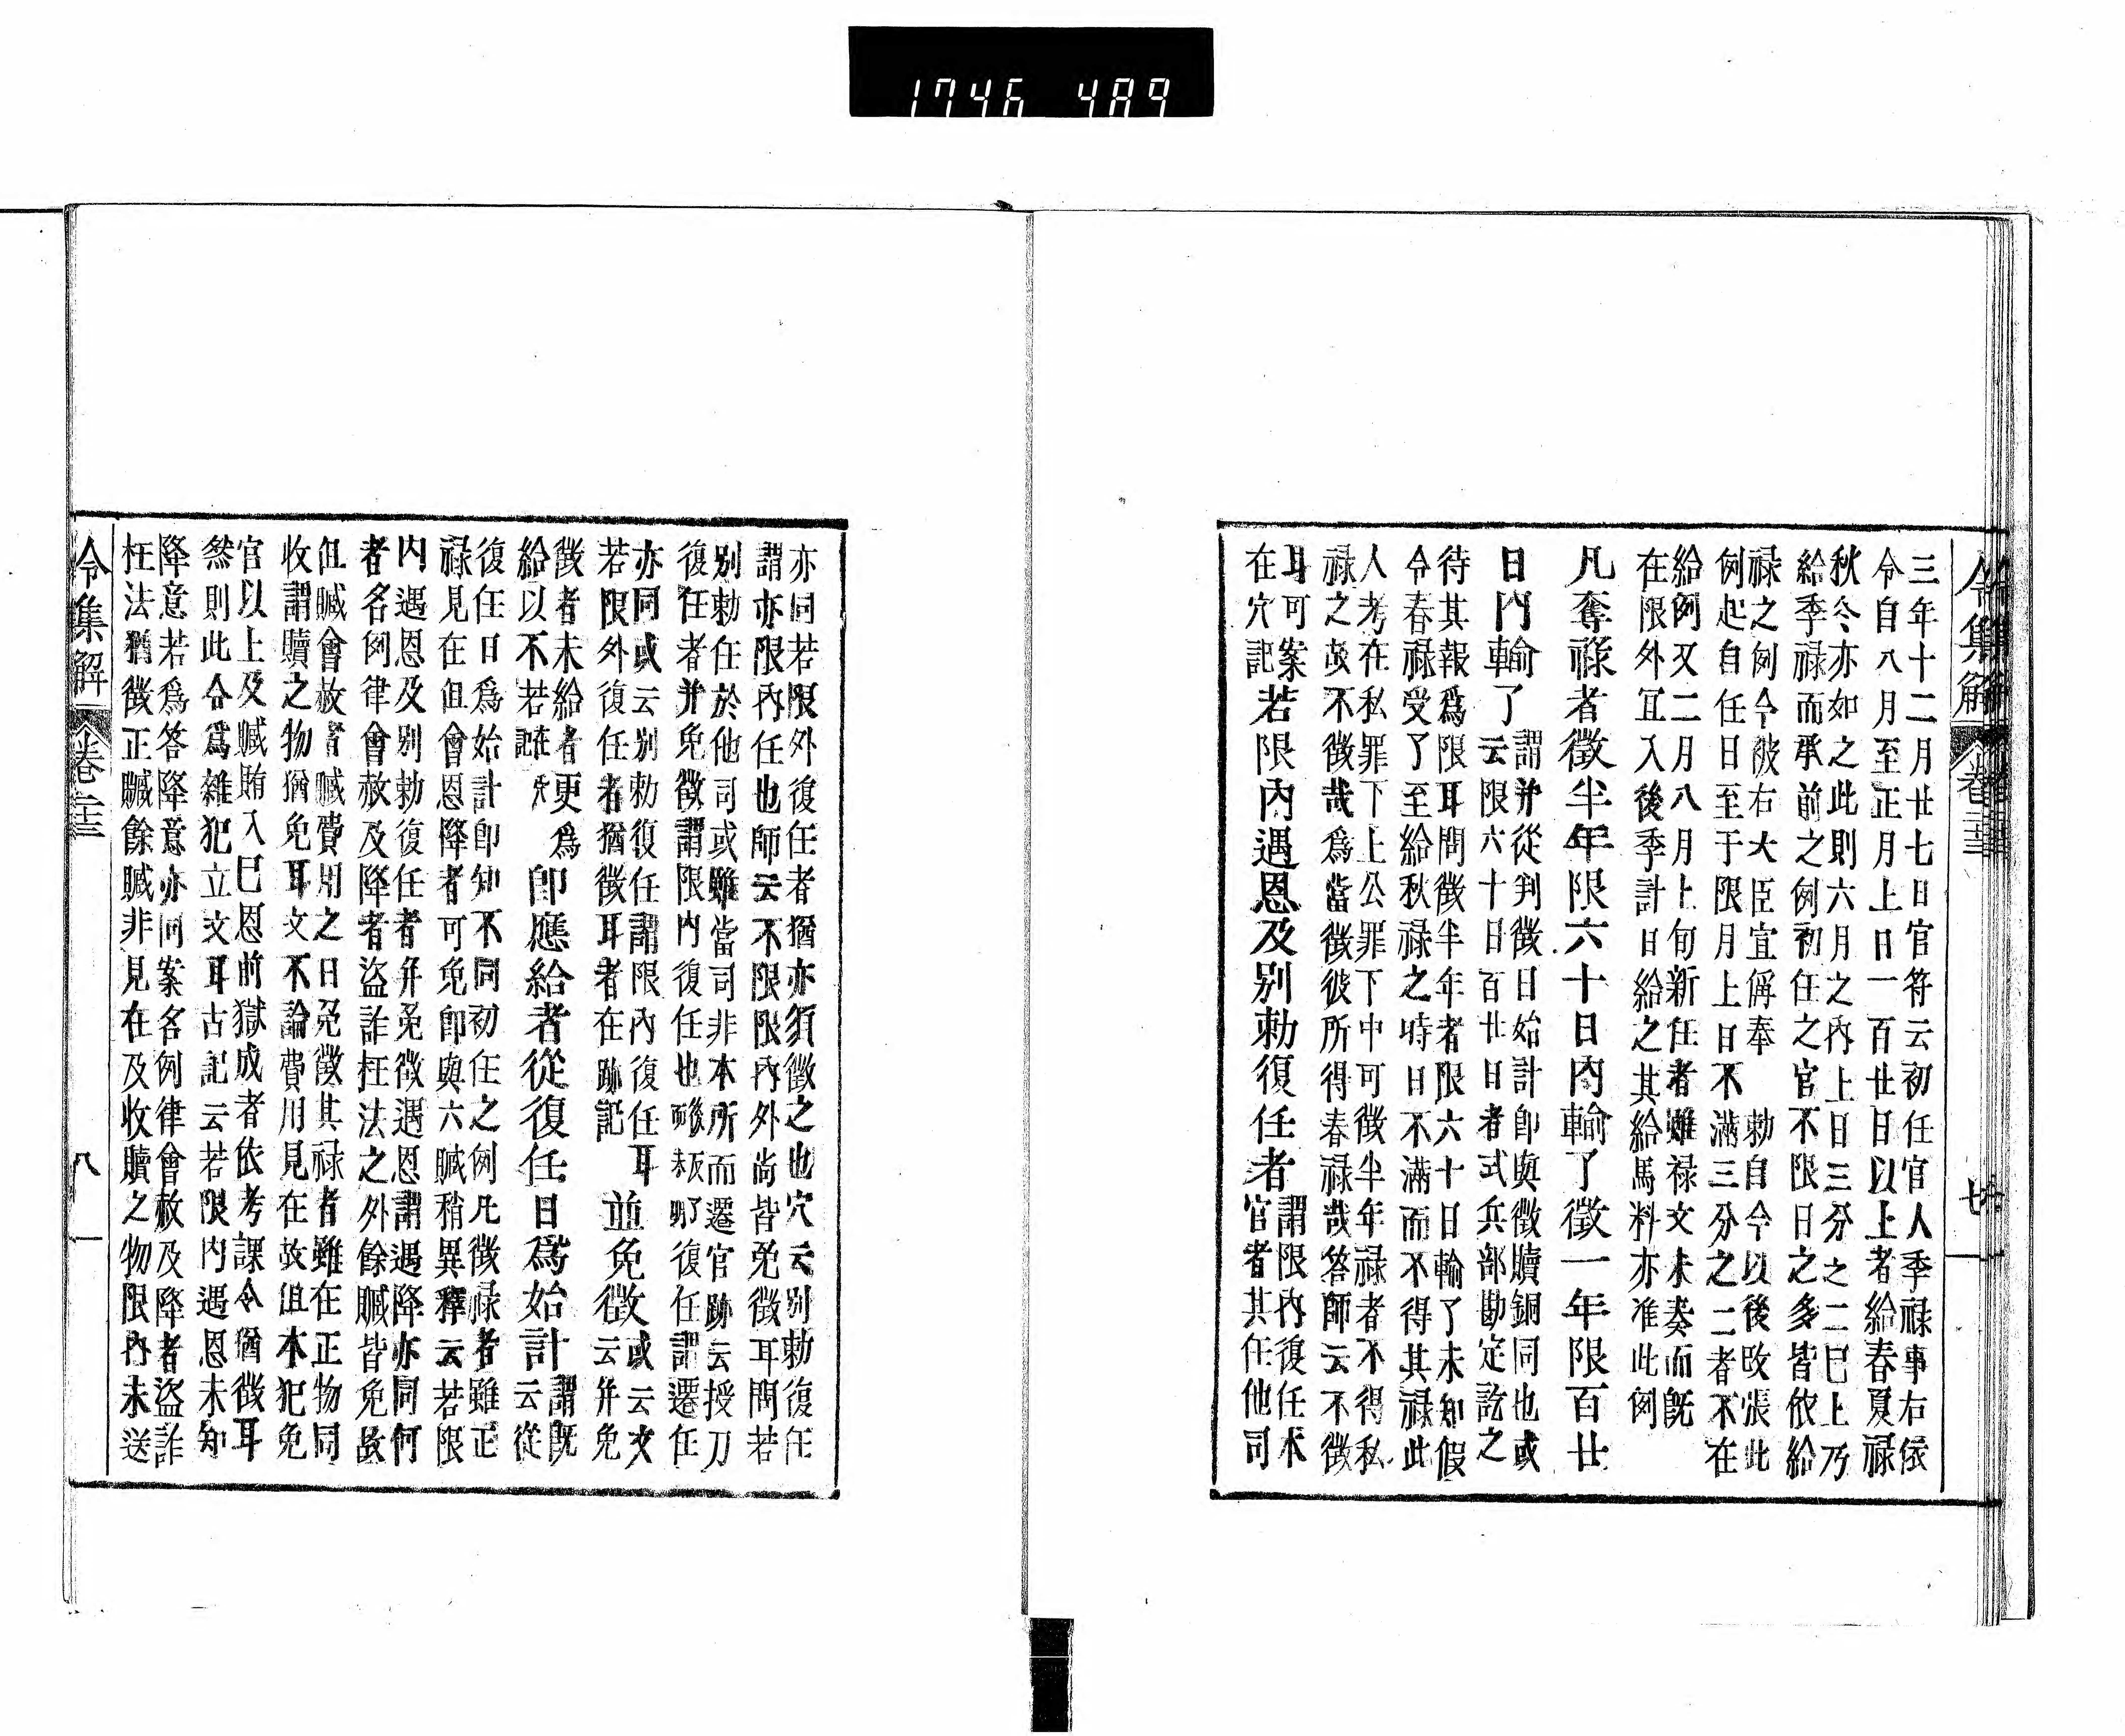 1746 489
令集解 卷二十三
三年十二月廿七日官符云初任官人季禄事右依
令自八月至正月上日一百廿日以上者給春夏禄
秋冬亦如之此則六月之内上日三分之二已上乃
給季禄而承前之例初任之官不限日之多皆依給
禄之例令被右大臣宣偁奉 勅自今以後改張此
例起自任日至于限月上日不滿三分之二者不在
給例又二月八月上旬新任者雖禄文未奏而既
在限外冝入後季計日給之其給馬料亦准此例
凡奪禄者徵半年限六十日内輸了徵一年限百廿
日内輸了
謂并從判徵日始計即與徵贖銅同也或
云限六十日百廿日者式兵部勘定訖之
待其報爲限耳問徵半年者限六十日輸了未知假
令春禄受了至給秋禄之時日不滿而不得其禄此
人考在私罪下上公罪下中可徵半年禄者不得私
禄之故不徵哉爲當徵彼所得春禄哉答師云不徵
耳可案
在穴記
若限内遇恩及别勅復任者
謂限内復任本
官者其任他司
亦同若限外復任者猶亦須徵之也穴云别勅復任
謂亦限内任也師云不限限内外尚皆免徵耳問若
别勅任於他司或雖當司非本所而遷官跡云授刀
復任者并免徵謂限内復任也 復任謂遷任
亦同或云别勅復任謂限内復任耳
若限外復任者猶徵耳者在跡記
並免徵
或云文
云并免
徵者未給者更爲
給以不若在穴記
即應給者從復任日爲始計
謂既
云從
復任日爲始計即知不同初任之例凡徵禄者雖正
禄見在但會恩降者可免即與六贓稍異釋云若限
内遇恩及别勅復任者并免徵遇恩謂遇降亦同何
者名例律會赦及降者盜詐枉法之外餘贓皆免故
但贓會赦者贓費用之日免徵其禄者雖在正物同
收謂贖之物猶免耳文不論費用見在故但本犯免
官以上及贓賄入已恩前獄成者依考課令猶徵耳
然則此令爲雜犯立文耳古記云若限内遇恩未知
降意若爲答降意亦同案名例律會赦及降者盜詐
枉法猶徵正贓餘贓非見在及收贖之物限内未送
令集解 卷二十三 八